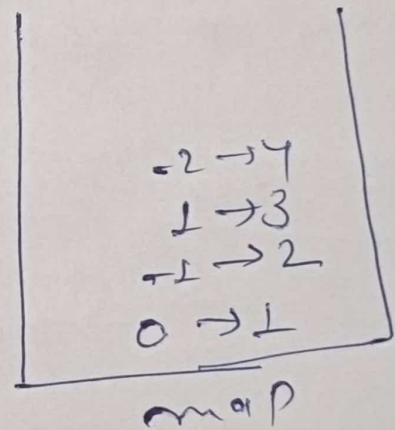 -2 → 4
1 → 3
-1 → 2
0 → 1
map